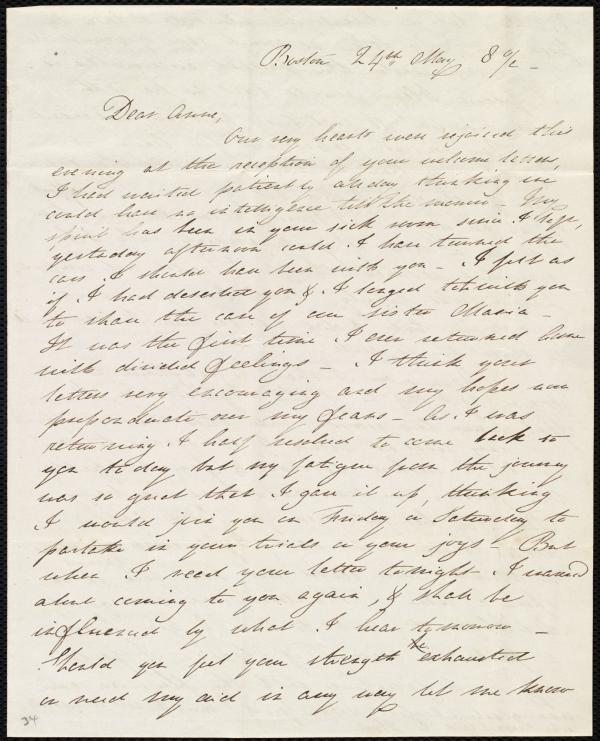 Boston 24th May 8 o/c -
Dear Anne,
Our very hearts were rejoiced this
evening at the reception of your welcome letters,
I had waited patiently all day thinking we
could have no intelligence till the morrow - My
spirit has been in your sick room since I left,
yesterday afternoon could I have turned the
cars I should have been with you - I felt as
if I had deserted you & I longed to be with you
to share the care of our sister Maria -
It was the first time I ever returned home
with divided feelings - I think your
letters very encouraging and my hopes now
preponderate over my fears - As I was
returning I half resolved to come back to
you today but my fatigue from the journey
was so great that I gave it up, thinking
I would join you on Friday or Saturday to
partake in your trials or your joys - But
when I recd your letter tonight I waver'd
about coming to you again, & shall be
influenced by what I hear tomorrow -
Should you feel your strength exhausted
or need my aid in any way let me know
34